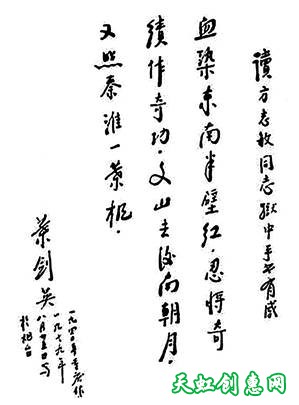 讀方志敏同志獄中手书有感
血染东南半壁红．忍將奇
績作奇功．文山去後南朝月．
又照秦淮一葉枫．
葉劍英
一九四〇年重庆作
一九七九年
八月十五日写
於烟台
天虹创意网